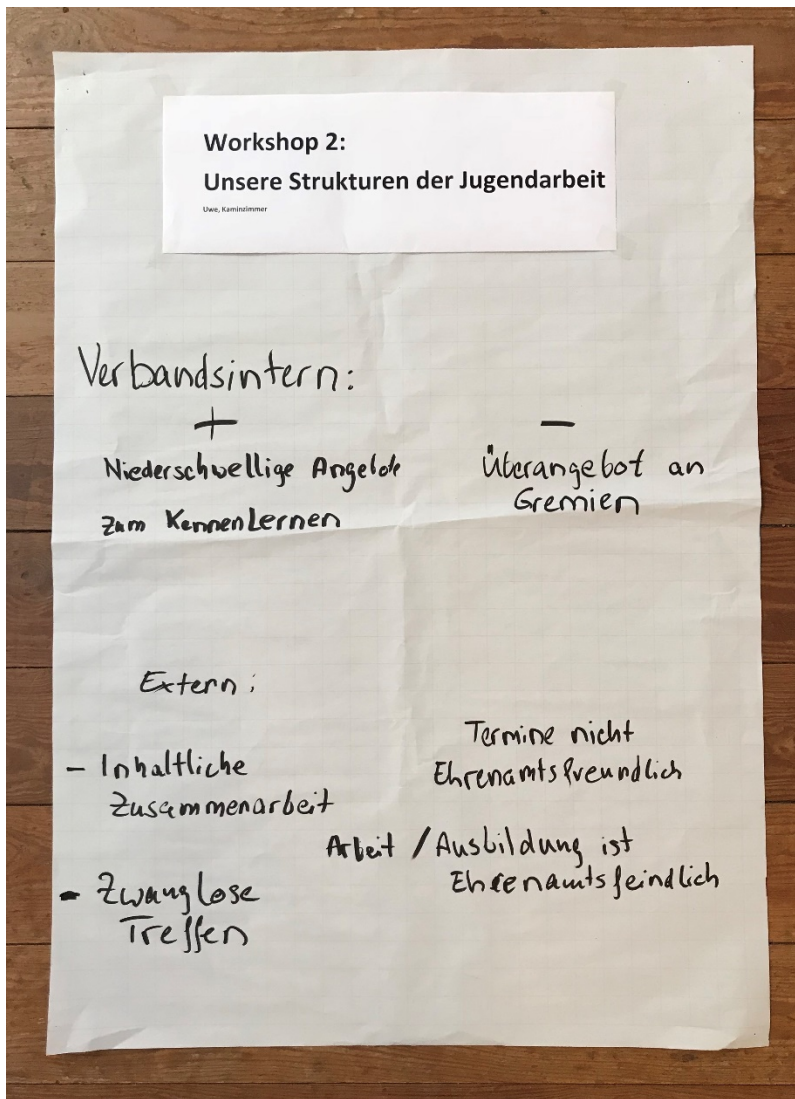 Workshop 2:
Unsere Strukturen der Jugendarbeit
Uwe, Kaminzimmer
Verbandsintern:
+
Niederschwellige Angebote
zum KennenLernen
–
Überangebot an
Gremien
Extern:
- Inhaltliche
Zusammenarbeit
- Zwanglose
Treffen
Termine nicht
Ehrenamtsfreundlich
Arbeit / Ausbildung ist
Ehrenamtsfeindlich